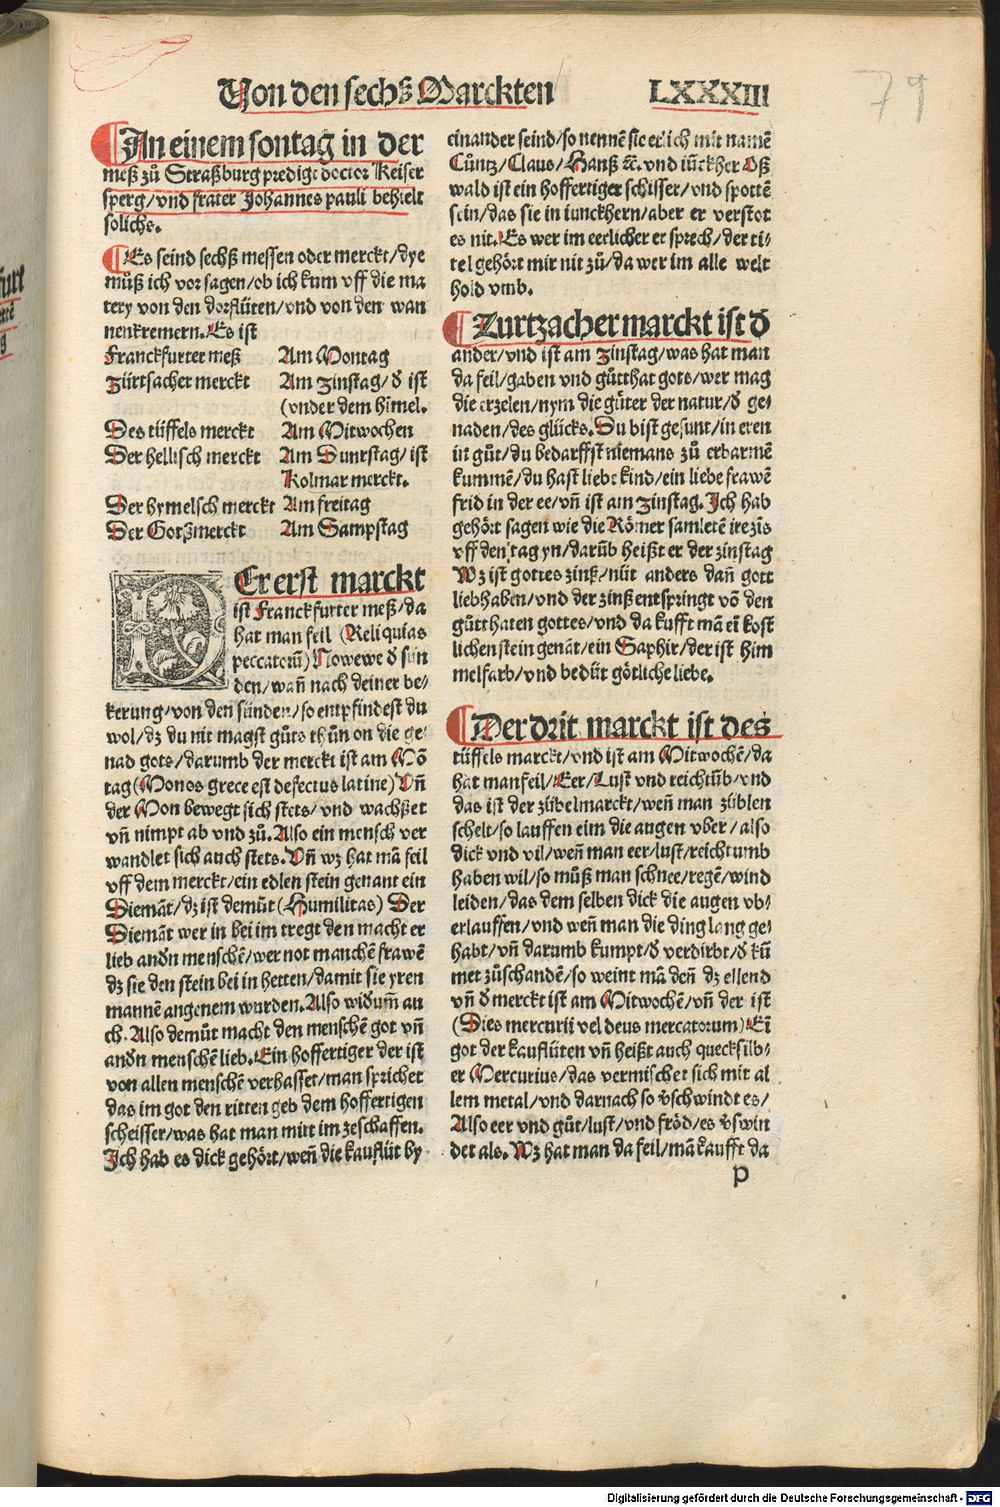 Von den sechß Marckten LXXXIII
79
An einem sontag in der
meß zů Straßburg prediget doctor Keiser
sperg/vnd frater Johannes pauli behielt
solichs.
Es seind sechß messen oder merckt/dye
můß ich vor sagen/ob ich kum vff die ma
tery von den dorflüten/vnd von den wan
nenkremern. Es ist
Franckfurter meß Am Montag
Zürtsacher merckt Am Zinstag/ď ist
(vnder dem himel.
Des tüffels merckt Am Mitwochen
Der hellisch merckt Am Dunrstag/ist
Kolmar merckt.
Der hymelsch merckt Am freitag
Der Gotßmerckt Am Sampstag
DEr erst marckt
ist Franckfurter meß/da
hat man feil (Reliquias
peccatorū) Nowewe ď sün
den/wañ nach deiner be/
kerung/von den sünden/so entpfindest du
wol/dz du nit magst gůts thůn on die ge
nad gots/darumb der merckt ist am Mō
tag (Monos grece est defectus latine) Vñ
der Mon bewegt sich stets/vnd wachßet
vñ nimpt ab vnd zů. Also ein mensch ver
wandlet sich auch stets. Vñ wz hat mā feil
vff dem merckt/ein edlen stein genant ein
Diemāt/dz ist demůt (Humilitas) Der
Diemāt wer in bei im tregt den macht er
lieb anďn menschē/wer not manchē frawē
dz sie den stein bei in hetten/damit sie yren
mannē angenem wurden. Also widum̃ au
ch. Also demůt macht den menschē got vñ
anďn menschē lieb. Ein hoffertiger der ist
von allen menschē verhasset/man sprichet
das im got den ritten geb dem hoffertigen
scheisser/was hat man mitt im zeschaffen.
Ich hab es dick gehört/weñ die kauflüt by
einander seind/so nennē sie erlich mit namē
Cůntz/Claus/Hanß ꝛc. vnd iūckher Oß
wald ist ein hoffertiger schisser/vnd spottē
sein/das sie in iunckhern/aber er verstot
es nit. Es wer im eerlicher er sprech/der ti/
tel gehört mir nit zů/da wer im alle welt
hold vmb.
Zurtzacher marckt ist ď
ander/vnd ist am Zinstag/was hat man
da feil/gaben vnd gůtthat gots/wer mag
die erzelen/nym die güter der natur/ď ge/
naden/des glücks. Du bist gesunt/in eren
in gůt/du bedarffst niemans zů erbarmē
kummē/du hast liebe kind/ein liebe frawē
frid in der ee/vñ ist am Zinstag. Ich hab
gehört sagen wie die Römer samletē ire zis
vff den tag yn/darūb heißt er der zinstag
Wz ist gottes zinß/nüt anders dañ gott
liebhaben/vnd der zinß entspringt vō den
gůtthaten gottes/vnd da kufft mā eī kost
lichen stein genāt/ein Saphir/der ist him
melfarb/vnd bedüt götliche liebe.
Der drit marckt ist des
tüffels marckt/vnd ist am Mitwochē/da
hat man feil/Eer/Lust vnd reichtūb/vnd
das ist der zübelmarckt/weñ man züblen
schelt/so lauffen eim die augen vber/also
dick vnd vil/weñ man eer/lust/reichtumb
haben wil/so můß man schnee/regē/wind
leiden/das dem selben dick die augen vb/
erlauffen/vnd weñ man die ding lang ge/
habt/vñ darumb kumpt/ď verdirbt/ď kū
met zůschandē/so weint mā deñ dz ellend
vñ ď merckt ist am Mitwochē/vñ der ist
(Dies mercurii vel deus mercatorum) Eī
got der kauflüten vñ heißt auch quecksilb/
er Mercurius/das vermischet sich mit al
lem metal/vnd darnach so v̄schwindt es/
Also eer vnd gůt/lust/vnd fröd/es v̄swin
det als. Wz hat man da feil/mā kaufft da
p
Digitalisierung gefördert durch die Deutsche Forschungsgemeinschaft - DFG